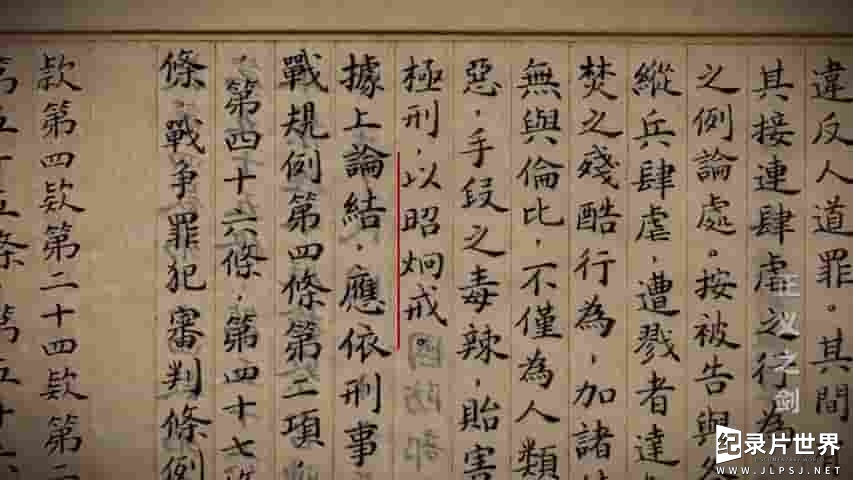 違反人道罪。其間
其接連肆虐之行為
之例論處。按被告與各
縱兵肆虐，遭戮者達
焚之殘酷行為，加諸
無與倫比，不僅為人類
惡，手段之毒辣，貽害
極刑，以昭炯戒。
國防部
據上論結，應依刑事
戰規例第四條第二項
第四十六條，第四十七
條，戰爭罪犯審判條例
款第四款第二十四款第二
第五十五條，第五十六
正义之剑
纪录片世界
WWW.JLPSJ.NET